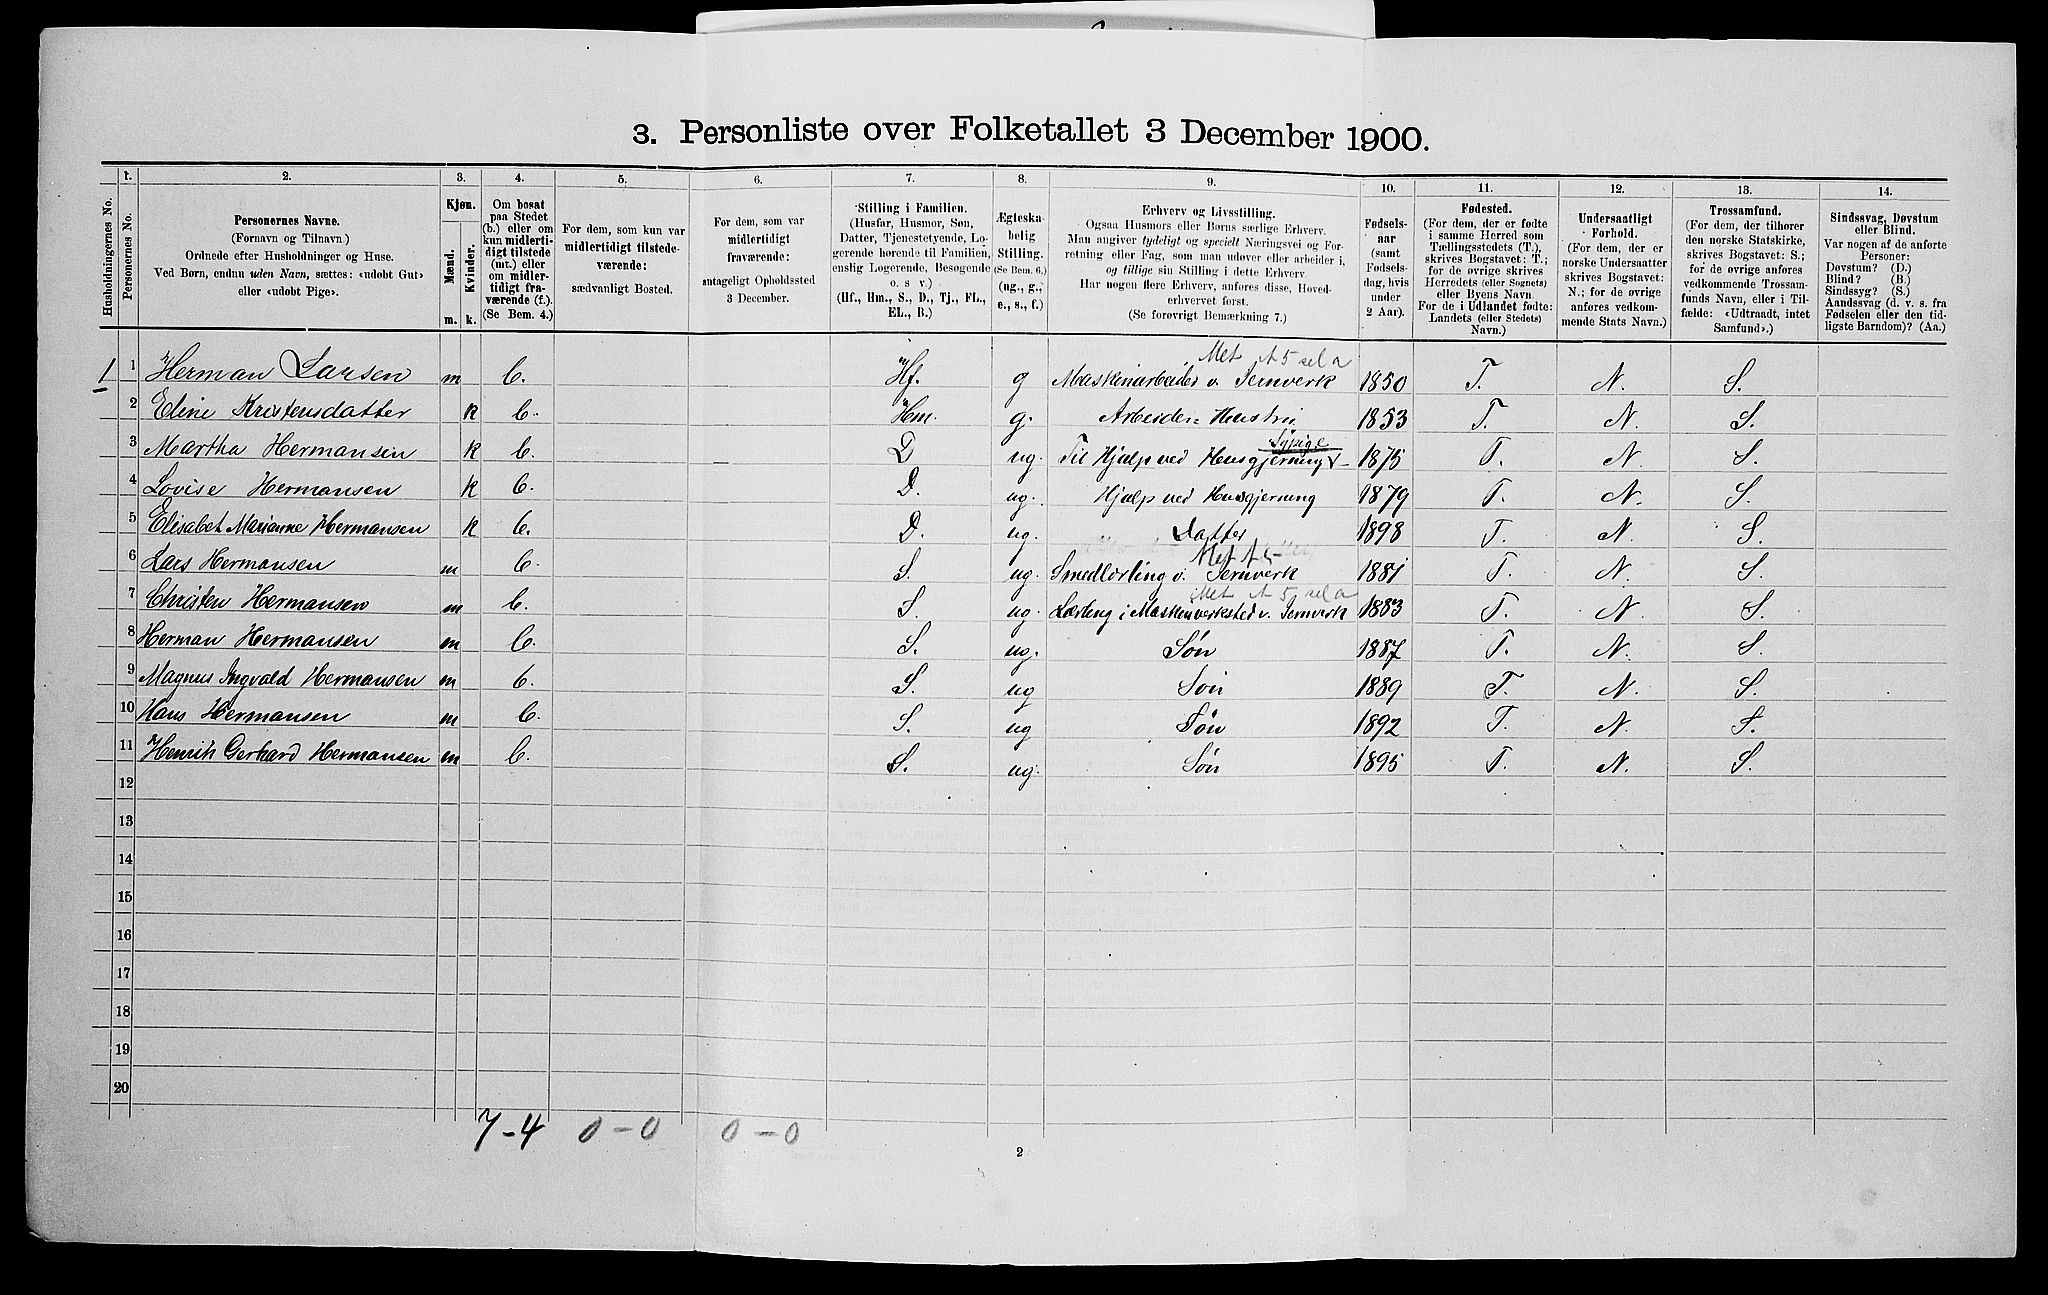 3. Personliste over Folketallet 3 December 1900.
1. 2. 3. 4. 5. 6. 7. 8. 9. 10. 11. 12. 13. 14.
Husholdningernes No.
Personernes No.
Personernes Navne.
(Fornavn og Tilnavn)
Ordnede efter Husholdninger og Huse.
Ved Børn, endnu uden Navn, sættes: «udøbt Gut»
eller «udøbt Pige».
Kjøn.
Mænd. Kvinder.
m. k.
Om bosat
paa Stedet
(b.) eller om
kun midlerti-
digt tilstede
(mt.) eller
om midler-
tidigt fra-
værende (f.).
(Se Bem. 4.)
For dem, som kun var
midlertidigt tilstede-
værende:
sædvanligt Bosted.
For dem, som var
midlertidigt
fraværende:
antageligt Opholdssted
3 December.
Stilling i Familien.
(Husfar, Husmor, Søn,
Datter, Tjenestetyende, Lo-
gerende hørende til Familien,
enslig Logerende, Besøgende
o. s v.)
(Hf., Hm., S., D., Tj., FL.,
EL., B.)
Ægteska-
belig
Stilling.
(Se Bem. 6.)
(ug., g.,
e., s., f.)
Erhverv og Livsstilling.
Ogsaa Husmors eller Børns særlige Erhverv.
Man angiver tydeligt og specielt Næringsvei og For-
retning eller Fag, som man udøver eller arbeider i,
og tillige sin Stilling i dette Erhverv.
Har nogen flere Erhverv, anføres disse, Hoved-
erhvervet først.
(Se forøvrigt Bemærkning 7.)
Fødsels-
aar
(samt
Fødsels-
dag, hvis
under
2 Aar).
Fødested.
(For dem, der er fødte
i samme Herred som
Tællingsstedets (T.),
skrives Bogstavet: T.;
for de øvrige skrives
Herredets (eller Sognets)
eller Byens Navn.
For de i Udlandet fødte:
Landets (eller Stedets)
Navn.)
Undersaatligt
Forhold.
(For dem, der er
norske Undersaatter
skrives Bogstavet:
N.; for de øvrige
anføres vedkom-
mende Stats Navn.)
Trossamfund.
(For dem, der tilhører
den norske Statskirke,
skrives Bogstavet: S.;
for de øvrige anføres
vedkommende Trossam-
funds Navn, eller i Til-
fælde: «Udtraadt, intet
Samfund».)
Sindssvag, Døvstum
eller Blind.
Var nogen af de anførte
Personer:
Døvstum? (D.)
Blind? (B.)
Sindssyg? (S.)
Aandssvag (d. v. s. fra
Fødselen eller den tid-
ligste Barndom)? (Aa.)
Met A 5 sel a
1 1 Herman Larsen m b. Hf. g Maskinarbeider v. Jernverk 1850 T. N. S.
2 Eline Kristensdatter k b. Hm. g. Arbeider Hustru 1853 T. N S.
Sypige
3 Martha Hermansen k b. D ug. Til Hjælp ved Husgjerning 1875 T. N. S.
4 Lovise Hermansen k b. D. ug. Hjælp ved Husgjerning 1879 T. N. S.
5 Elisabet Marianne Hermansen k b. D. ug. Datter 1898 T. N. S.
Met A 5
6 Lars Hermansen m b. S. ug. Smedlærling v. Jernverk 1881 T. N. S.
Met A 5 sel a
7 Christen Hermansen m b. S. ug. Lærling i Maskinverksted v. Jernverk 1883 T. N. S.
8 Herman Hermansen m b. S. ug. Søn 1887 T. N. S.
9 Magnus Ingvald Hermansen m b. S. ug Søn 1889 T. N. S.
10 Hans Hermansen m b. S. ug Søn 1892 T. N. S.
11 Henrik Gerhard Hermansen m b. S. ug. Søn 1895 T. N. S.
12
13
14
15
16
17
18
19
20
7-4 0-0 0-0
2